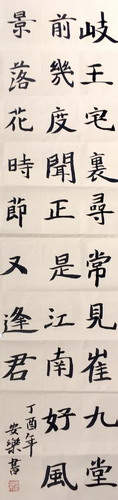 岐王宅裏尋常見崔九堂
前幾度聞正是江南好風
景落花時節又逢君
丁酉年
安樂書